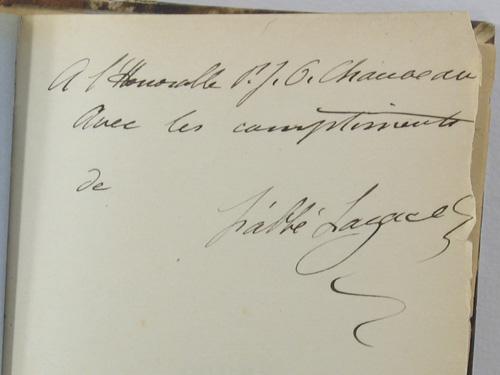 A l'Honorable P. J. O. Chauveau
Avec les compliments
de
L'abbé